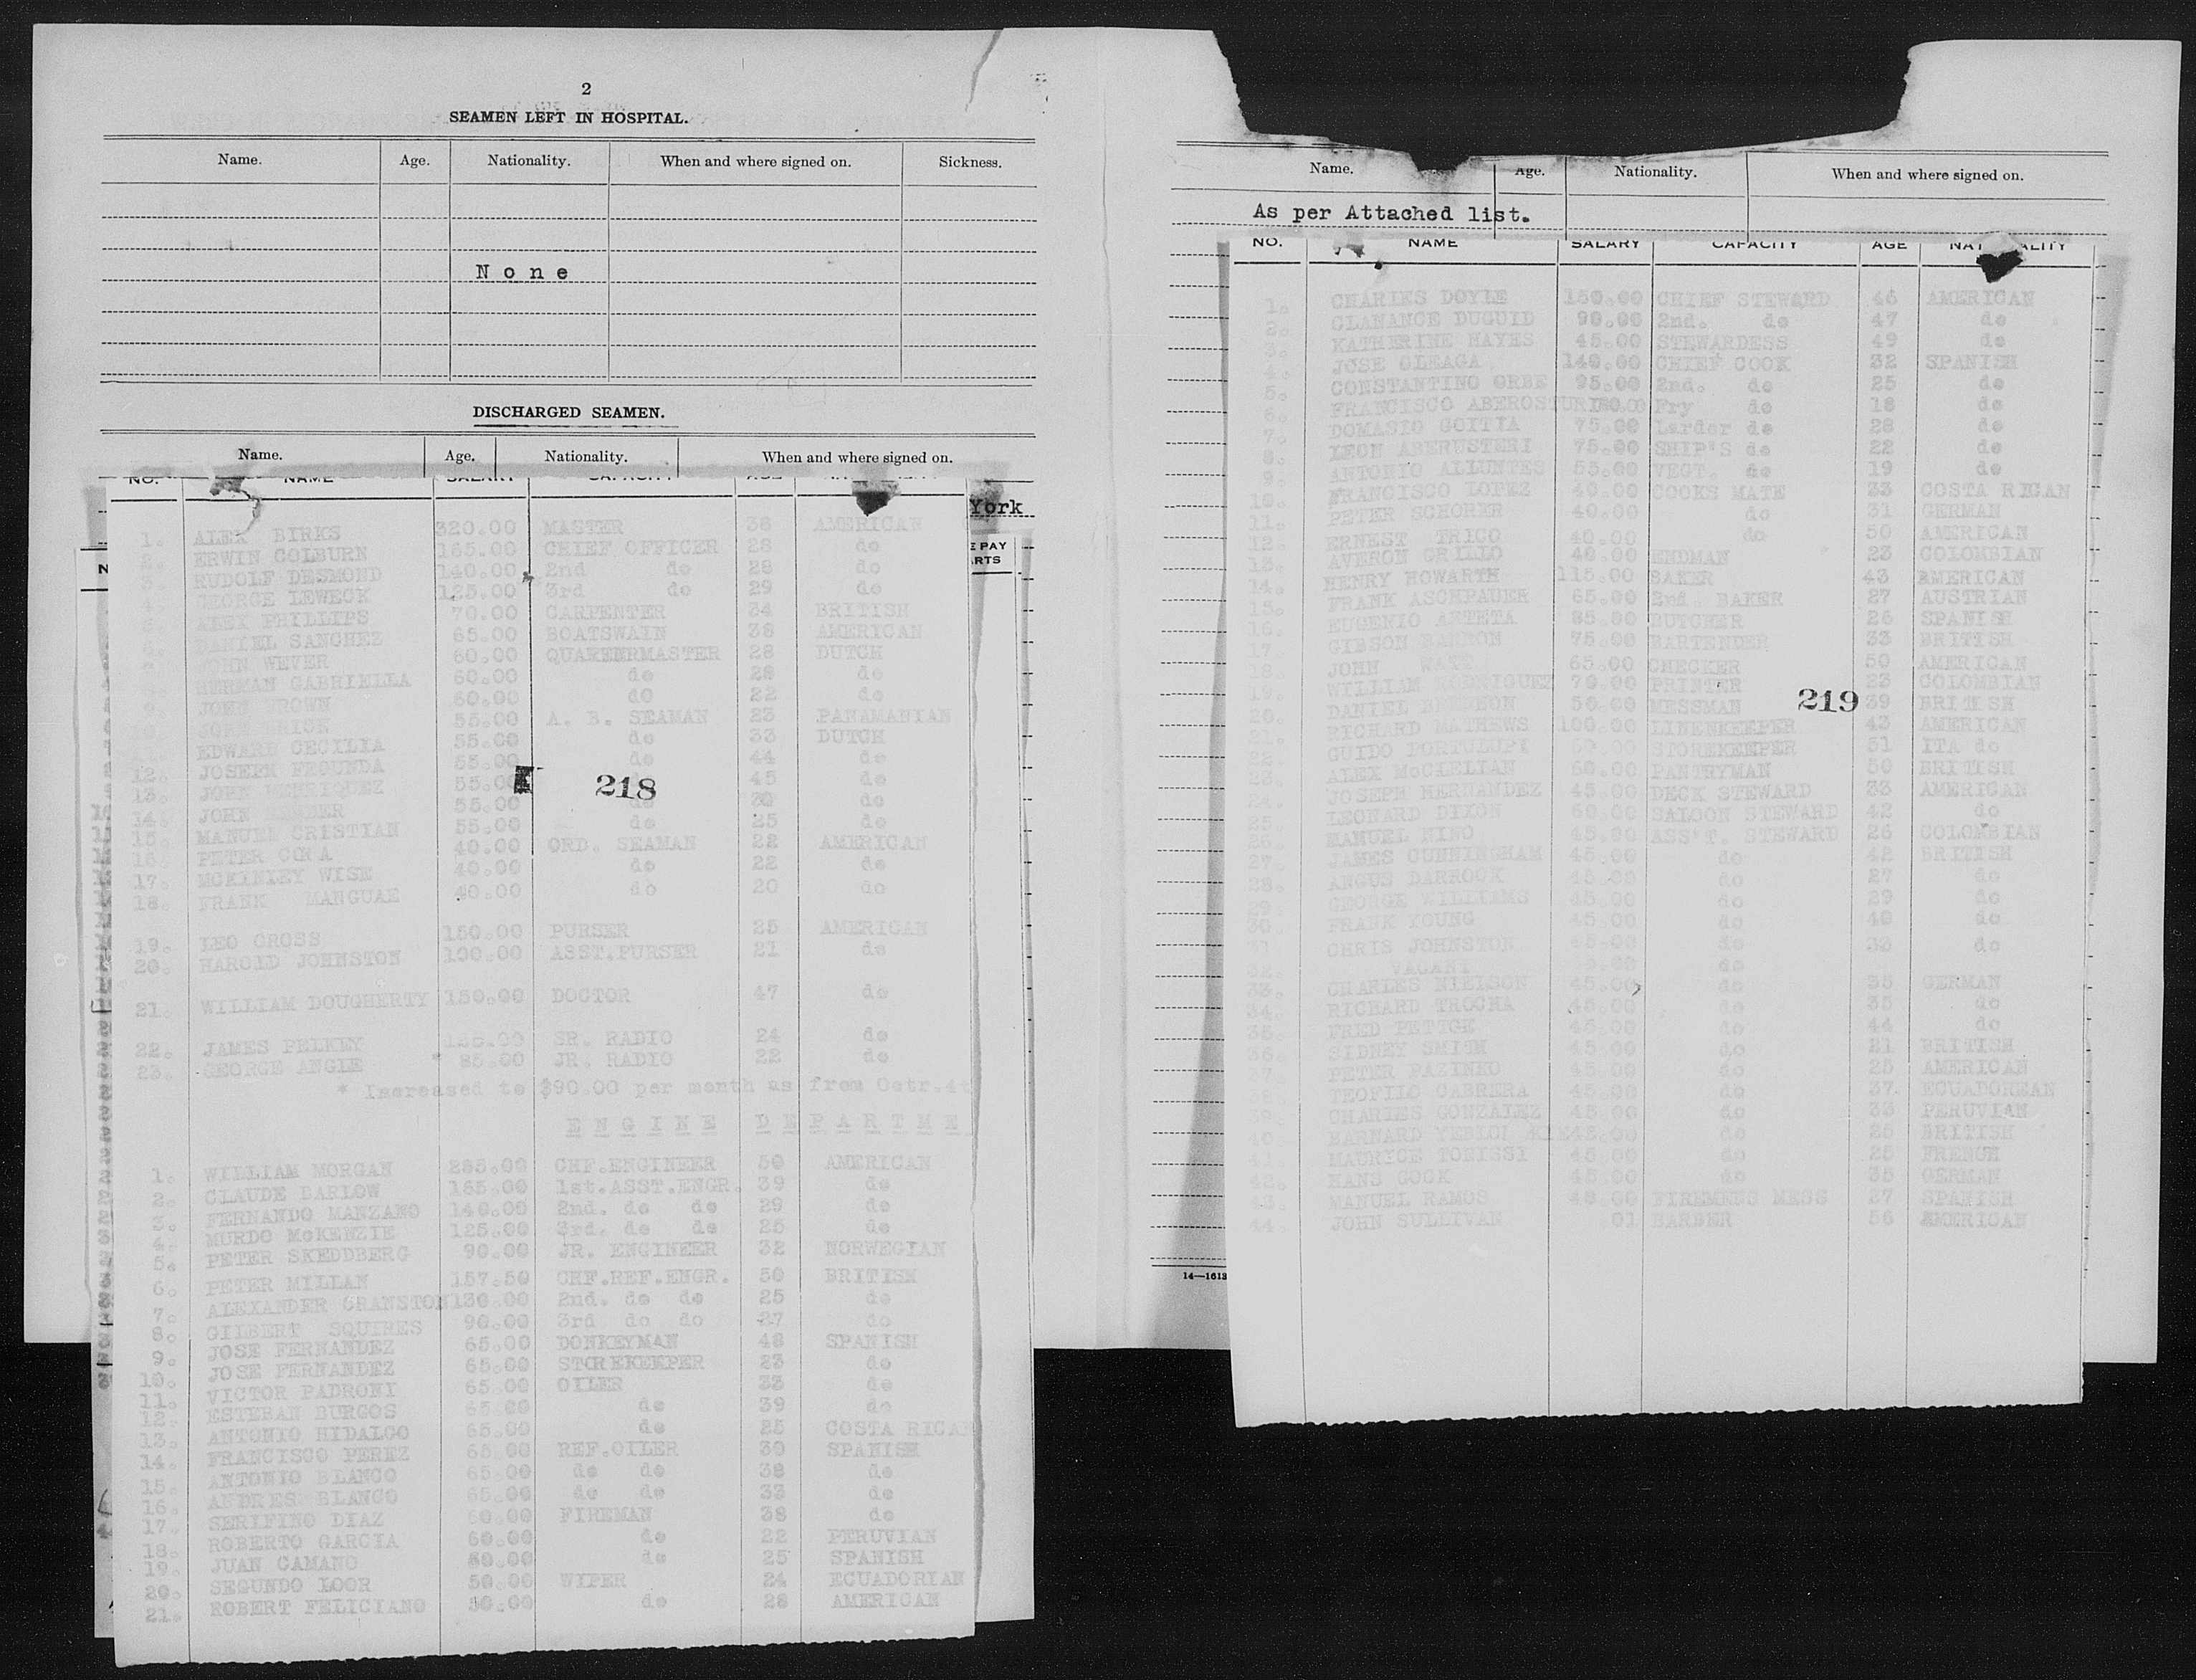 2
SEAMEN LEFT IN HOSPITAL.
Name. Age. Nationality. When and where signed on. Sickness.
None
DISCHARGED SEAMEN.
Name. Age. Nationality. When and where signed on.
York
E PAY
RTS
N
NO. NAME SALARY CAPACITY AGE
1. ALEX BIRKS 320.00 MASTER 36 AMERICAN
2. ERWIN COLBURN 165.00 CHIEF OFFICER 28 do
3. RUDOLF DESMOND 140.00 2nd do 28 do
4. GEORGE LEWECK 125.00 3rd do 29 do
5. ALEX PHILLIPS 70.00 CARPENTER 34 BRITISH
6. DANIEL SANCHEZ 65.00 BOATSWAIN 38 AMERICAN
JOHN WEVER 60.00 QUARTERMASTER 28 DUTCH
HERMAN GABRIELLA 60.00 do 28 do
JOHN BROWN 60.00 do 22 do
JOHN 55.00 A. B. SEAMAN 23 PANAMANIAN
EDWARD CECILIA 55.00 do 33 DUTCH
12. JOSEPH FECUNDA 55.00 do 44 do
13. JOHN HENRIQUEZ 55.00 45 do
218
14. JOHN 55.00 do
15. MANUEL CRISTIAN 55.00 do 25 do
16. PETER 40.00 ORD. SEAMAN 22 AMERICAN
17. MCKINLEY WISE 40.00 do 22 do
18. FRANK MANGUAE 40.00 do 20 do
19. LEO GROSS 150.00 PURSER 25 AMERICAN
20. HAROLD JOHNSTON 100.00 ASST.PURSER 21 do
21. WILLIAM DOUGHERTY 150.00 DOCTOR 47 do
22. JAMES PELKEY SR. RADIO 24 do
23. GEORGE ANGLE * 85.00 JR. RADIO 22 do
* Increased to $90.00 per month as from Octr.4t
ENGINE DEPARTME
1. WILLIAM MORGAN 285.00 CHF.ENGINEER 50 AMERICAN
2. CLAUDE BARLOW 165.00 1st.ASST.ENGR. 39 do
3. FERNANDO MANZANO 140.00 2nd. do do 29 do
4. MURDO McKENZIE 125.00 3rd. do do 25 do
5. PETER SKEDDBERG 90.00 JR. ENGINEER 32 NORWEGIAN
6. PETER MILLAN 157.50 CHF.REF.ENGR. 50 BRITISH
7. ALEXANDER CRANSTON 130.00 2nd. do do 25 do
8. GILBERT SQUIRES 90.00 3rd do do 27 do
9. JOSE FERNANDEZ 65.00 DONKEYMAN 48 SPANISH
10. JOSE FERNANDEZ 65.00 STOREKEEPER 23 do
11. VICTOR PADRONI 65.00 OILER 33 do
12. ESTEBAN BURGOS 65.00 do 39 do
13. ANTONIO HIDALGO 65.00 do 25 COSTA RICAN
14. FRANCISCO PEREZ 65.00 REF.OILER 30 SPANISH
15. ANTONIO BLANCO 65.00 do do 38 do
16. ANDRES BLANCO 65.00 do do 33 do
17. SERIFINO DIAZ 60.00 FIREMAN 38 do
18. ROBERTO GARCIA 60.00 do 22 PERUVIAN
19. JUAN CAMANO 60.00 do 25 SPANISH
20. SEGUNDO LOOR 50.00 WIPER 24 ECUADORIAN
21. ROBERT FELICIANO 50.00 do 28 AMERICAN
Name. Age. Nationality. When and where signed on.
As per Attached list.
NO. NAME SALARY CAPACITY AGE NAT ALITY
1. CHARLES DOYLE 150.00 CHIEF STEWARD 46 AMERICAN
2. CLANANCE DUGUID 90.00 2nd. do 47 do
3. KATHERINE HAYES 45.00 STEWARDESS 49 do
4. JOSE OLEAGA 140.00 CHIEF COOK 32 SPANISH
5. CONSTANTINO ORBE 95.00 2nd. do 25 do
6. FRANCISCO Fry do 18 do
7. DOMASIO GOITIA 75.00 Larder do 28 do
8. LEON ABERUSTERI 75.00 SHIP'S do 22 do
9. ANTONIO ALLUNTES 55.00 VEGT. do 19 do
10. FRANCISCO LOPEZ 40.00 COOKS MATE 33 COSTA RICAN
11. PETER SCHORER 40.00 do 31 GERMAN
12. ERNEST TRICO 40.00 do 50 AMERICAN
13. AVERON GRILLO 40.00 23 COLOMBIAN
14. HENRY HOWARTH 115.00 BAKER 43 AMERICAN
15. FRANK ASCHPAUER 65.00 2nd. BAKER 27 AUSTRIAN
16. EUGENIO ARTETA 85.00 BUTCHER 26 SPANISH
17. GIBSON 75.00 BARTENDER 33 BRITISH
18. JOHN 65.00 CHECKER 50 AMERICAN
19. WILLIAM RODRIGUEZ 70.00 PRINTER 23 COLOMBIAN
219
20. DANIEL 50.00 MESSMAN 39 BRITISH
21. RICHARD MATHEWS 100.00 LINENKEEPER 43 AMERICAN
22. GUIDO PORTULUPI 60.00 STOREKEEPER 51 ITA do
23. ALEX McCLELLAN 60.00 PANTRYMAN 50 BRITISH
24. JOSEPH HERNANDEZ 45.00 DECK STEWARD 33 AMERICAN
25. LEONARD DIXON 60.00 SALOON STEWARD 42 do
26. MANUEL NINO 45.00 ASS'T. STEWARD 26 COLOMBIAN
27. JAMES CUNNINGHAM 45.00 do 42 BRITISH
28. ANGUS DARROCK 45.00 do 27 do
29. GEORGE WILLIAMS 45.00 do 29 do
30. FRANK YOUNG 45.00 do 40 do
31 CHRIS JOHNSTON 45.00 do do
32. VACANT do
33. CHARLES NIELSON 45.00 do 35 GERMAN
34. RICHARD TROCHA 45.00 do 35 do
35. FRED 45.00 do 44 do
36. SIDNEY SMITH 45.00 do 21 BRITISH
37. PETER PAZINKO 45.00 do 25 AMERICAN
38. TEOFILO CABRERA 45.00 do 37. ECUADOREAN
39. CHARLES GONZALEZ 45.00 do 33 PERUVIAN
40. BARNARD do 25 BRITISH
41. MAURICE 45.00 do 25 FRENCH
42. HANS COOK 45.00 do 35 GERMAN
43. MANUEL RAMOS 45.00 FIREMENS MESS 27 SPANISH
44. JOHN SULLIVAN 01 BARBER 56 AMERICAN
14—1613